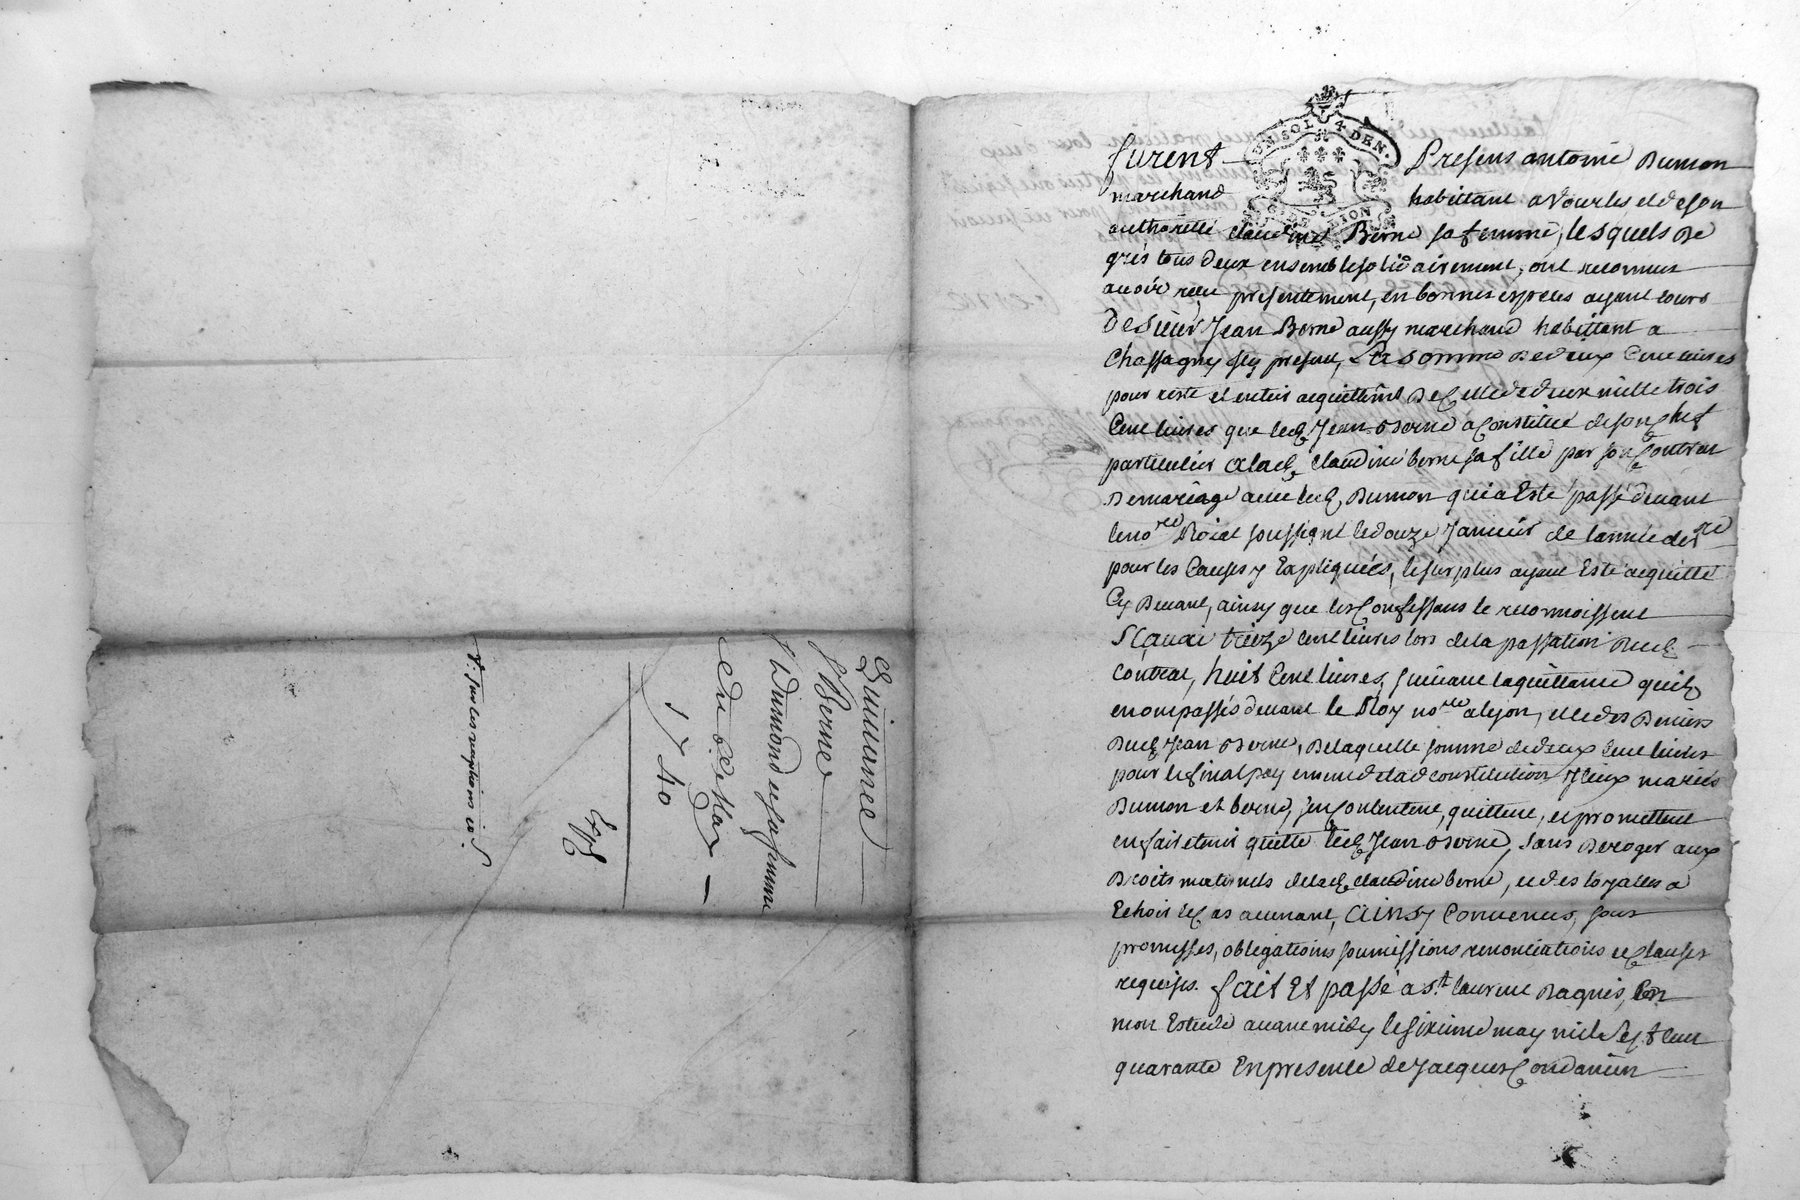 UN SOL 4 DEN.
G. DE LION
furent Presens antoine Dumon
marchand habittant a Vourles et de son
authorité claudine Berne sa femme, lesquels de
grés tous deux ensemble solidairement, ont reconnus
avoir recu presentement, en bonnes especes ayant cours
De sieur Jean Berne aussy marchand habittant a
Chassagny icy present, La somme de deux Cent livres
pour reste et entier acquittemt de Celle de deux mille trois
Cent livres que led. Jean Berne a Constitué de son Chef
particulier a lad. claudine berne sa fille par son Contrat
De mariage avec led. Dumon qui a Esté passé devant
le nore Roial soussigné le douze Janvier de l'année derre
pour les Causes y Expliquées, le surplus ayant Esté acquitté
Cy Devant, ainsy que les Confessans le reconnoissent
Sçavoir treize Cent livres lors de la passation dud.
Contrat, huit Cent livres, suivant la quittance quils
en ont passés devant le Roy nore a lyon, et le des Deniers
Dud. Jean Berne, De laquelle somme de deux Cent livres
pour le final payement de lad. constitution iceux mariés
Dumon et berne, s'en Contentent, quittent, et promettent
en faire tenir quitte led. Jean Berne, sans Deroger aux
Droits maternels de lad. claudine berne, et des loyalles a
Echoir le Cas avenant, Ainsy Convenus, sous
promesses, obligations soumissions renonciations et Clauses
requises. fait Et passé a st. laurent Dagnis, En
mon Estude avant midy le sixieme may mil sept Cent
quarante En presence de Jacques Condamin
Quittance
Berne
Dumond et sa femme
Du 6e. May
1740
Exp.